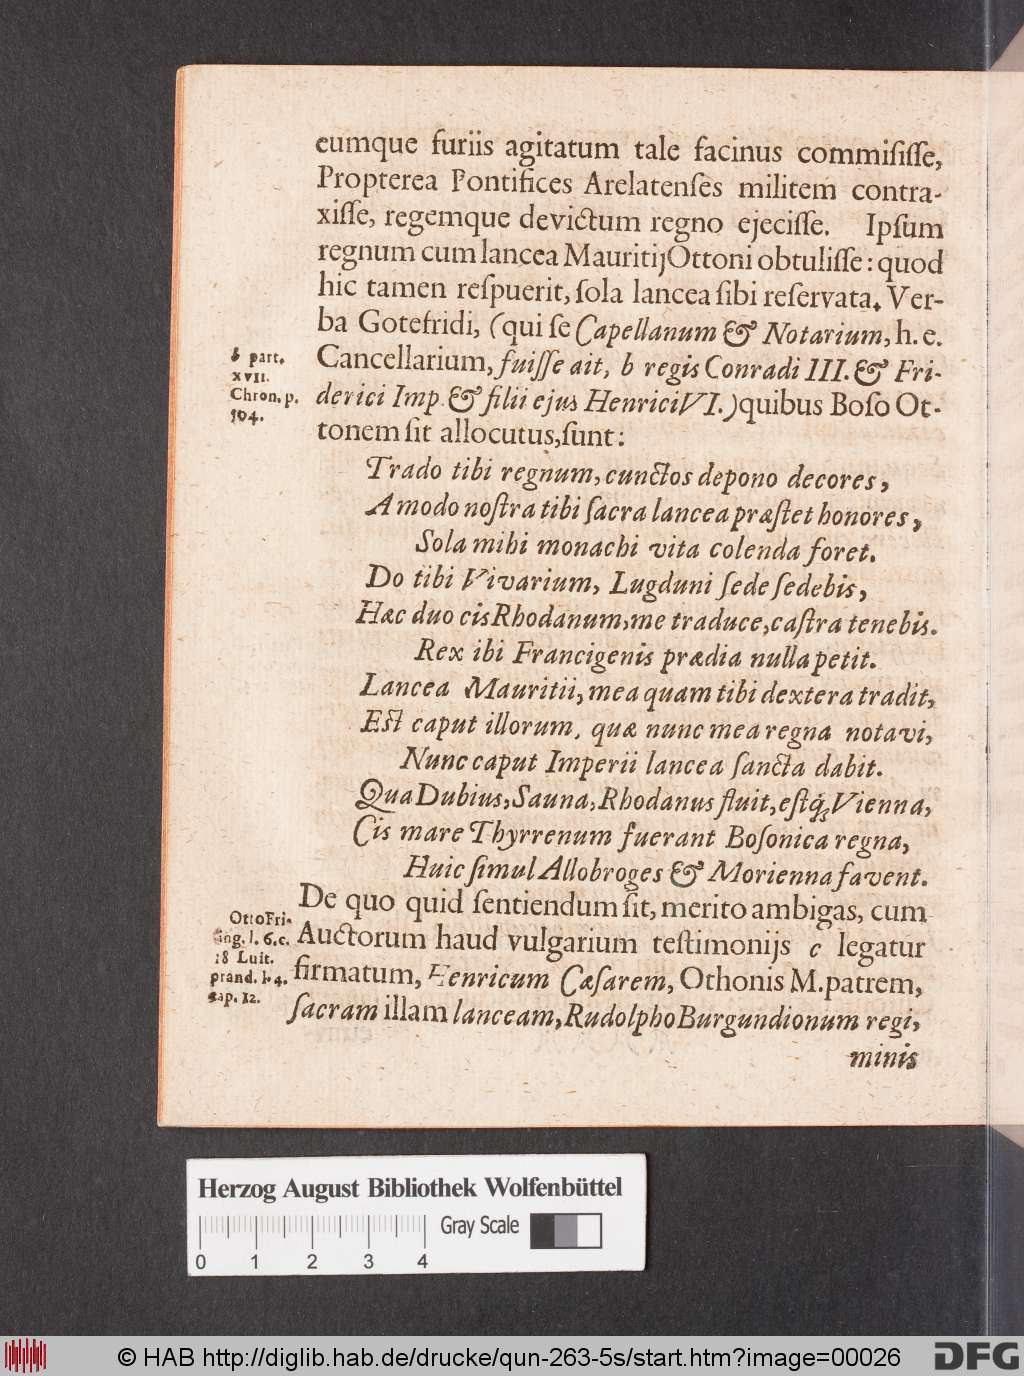 eumque furiis agitatum tale facinus commiſiſſe,
Propterea Pontifices Arelatenſes militem contra-
xiſſe, regemque devictum regno ejeciſſe. Ipſum
regnum cum lancea Mauritij Ottoni obtuliſſe: quod
hic tamen reſpuerit, ſola lancea ſibi reſervata. Ver-
ba Gotefridi, (qui ſe Capellanum & Notarium, h. e.
Cancellarium, fuiſſe ait, b regis Conradi III. & Fri-
derici Imp. & filii ejus Henrici VI.) quibus Boſo Ot-
tonem ſit allocutus, ſunt:
b part.
XVII.
Chron. p.
504.
Trado tibi regnum, cunctos depono decores,
Amodo noſtra tibi ſacra lancea præſtet honores,
Sola mihi monachi vita colenda foret.
Do tibi Vivarium, Lugduni ſede ſedebis,
Hæc duo cis Rhodanum, me traduce, caſtra tenebis.
Rex ibi Francigenis prædia nulla petit.
Lancea Mauritii, mea quam tibi dextera tradit,
Eſt caput illorum, quæ nunc mea regna notavi,
Nunc caput Imperii lancea ſancta dabit.
Qua Dubius, Sauna, Rhodanus fluit, eſtq́; Vienna,
Cis mare Thyrrenum fuerant Boſonica regna,
Huic ſimul Allobroges & Morienna favent.
De quo quid ſentiendum ſit, merito ambigas, cum
Auctorum haud vulgarium teſtimonijs c legatur
firmatum, Henricum Cæſarem, Othonis M. patrem,
ſacram illam lanceam, Rudolpho Burgundionum regi,
minis
Otto Fri-
ſing. l. 6. c.
18 Luit.
prand. l. 4.
cap. 12.
Herzog August Bibliothek Wolfenbüttel
Gray Scale
0 1 2 3 4
© HAB http://diglib.hab.de/drucke/qun-263-5s/start.htm?image=00026
DFG